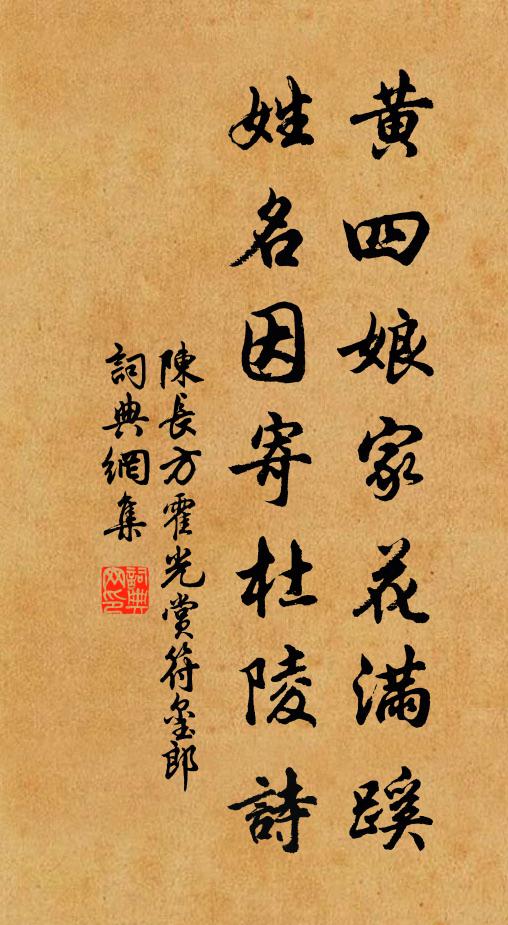 黄四娘家花满蹊
姓名因寄杜陵詩
陳長方霍光赏符玺郎
詞典網集
詞典網印